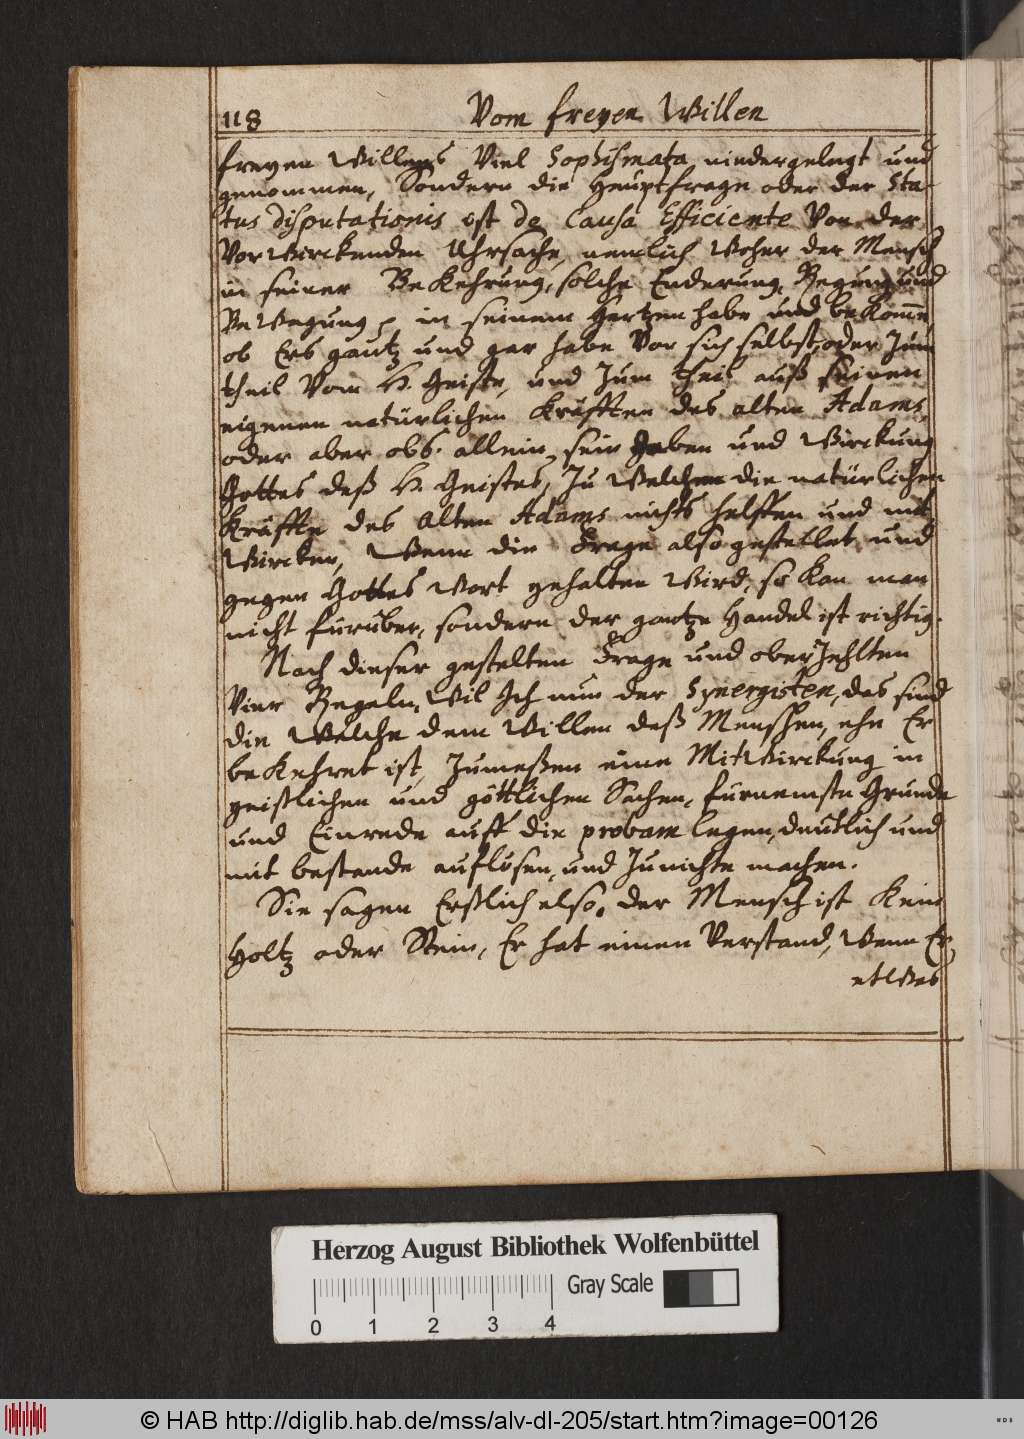 118 Vom freyen Willen
freyen Willens Viel Sophismata niedergelegt und
genommen, Sondern die Heuptfrage oder der Sta-
tus disputationis ist de Causa Efficiente Von der
Vorwirckenden Uhrsache, nemlich woher der Mensch
in seiner Bekehrung, solche Enderung, Regung und
Bewegung in seinem Hertzen habe und bekomme
ob Ers gantz und gar habe Vor sich selbst, oder Zum
theil Vom H. Geiste, und Zum theil auß seinen
eigenen natürlichen Kräfften des alten Adams,
oder aber obs allein sein Gaben und Wirckung
Gottes deß H. Geistes, Zu Welchen die natürlichen
Kräffte des Alten Adams nichts helffen und mit
Wircken, Wenn die Frage also gestellet und
gegen Gottes Wort gehalten Wird, so Kan man
nicht furuber, sondern der gantze Handel ist richtig.
Nach dieser gestelten Frage und oberzehlten
Vier Regeln, Wil Ich nun der Synergisten, das sind
die Welche dem Willen deß Menschen, ehe Er
bekehret ist, Zumeßen eine Mitwirckung in
geistlichen und göttlichen Sachen, furnemste Grunde
und Einrede auff die probam legen, deutlich und
mit bestande auflosen, und Zunichte machen.
Sie sagen Erstlich also, der Mensch ist Kein
Holtz oder Stein, Er hat einen Verstand, Wenn Er
etwas
Herzog August Bibliothek Wolfenbüttel
Gray Scale
0 1 2 3 4
© HAB http://diglib.hab.de/mss/alv-dl-205/start.htm?image=00126